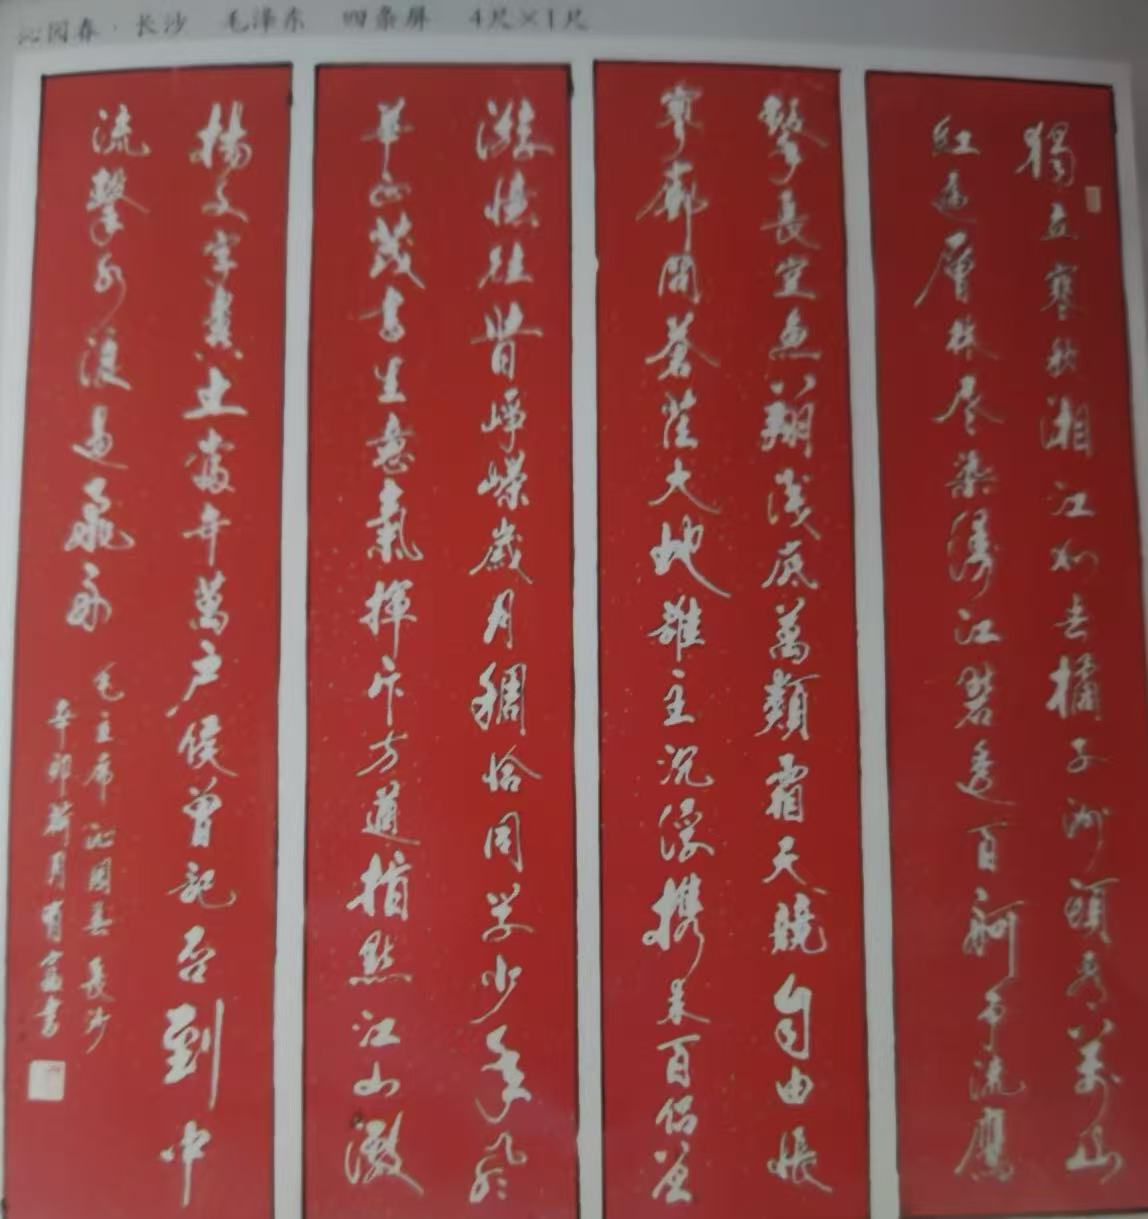 沁园春·长沙 毛泽东 四条屏 4尺×1尺
獨立寒秋湘江北去橘子洲頭看萬山
紅遍層林尽染漫江碧透百舸争流鷹
擊長空魚翔淺底萬類霜天競自由悵
寥廓問蒼茫大地誰主沉浮携来百侣曾
游憶往昔崢嶸歲月稠恰同学少年風
華正茂書生意氣揮斥方遒指點江山激
揚文字糞土當年萬户侯曾記否到中
流擊水浪遏飛舟
毛主席沁園春長沙
辛卯荷月有富書